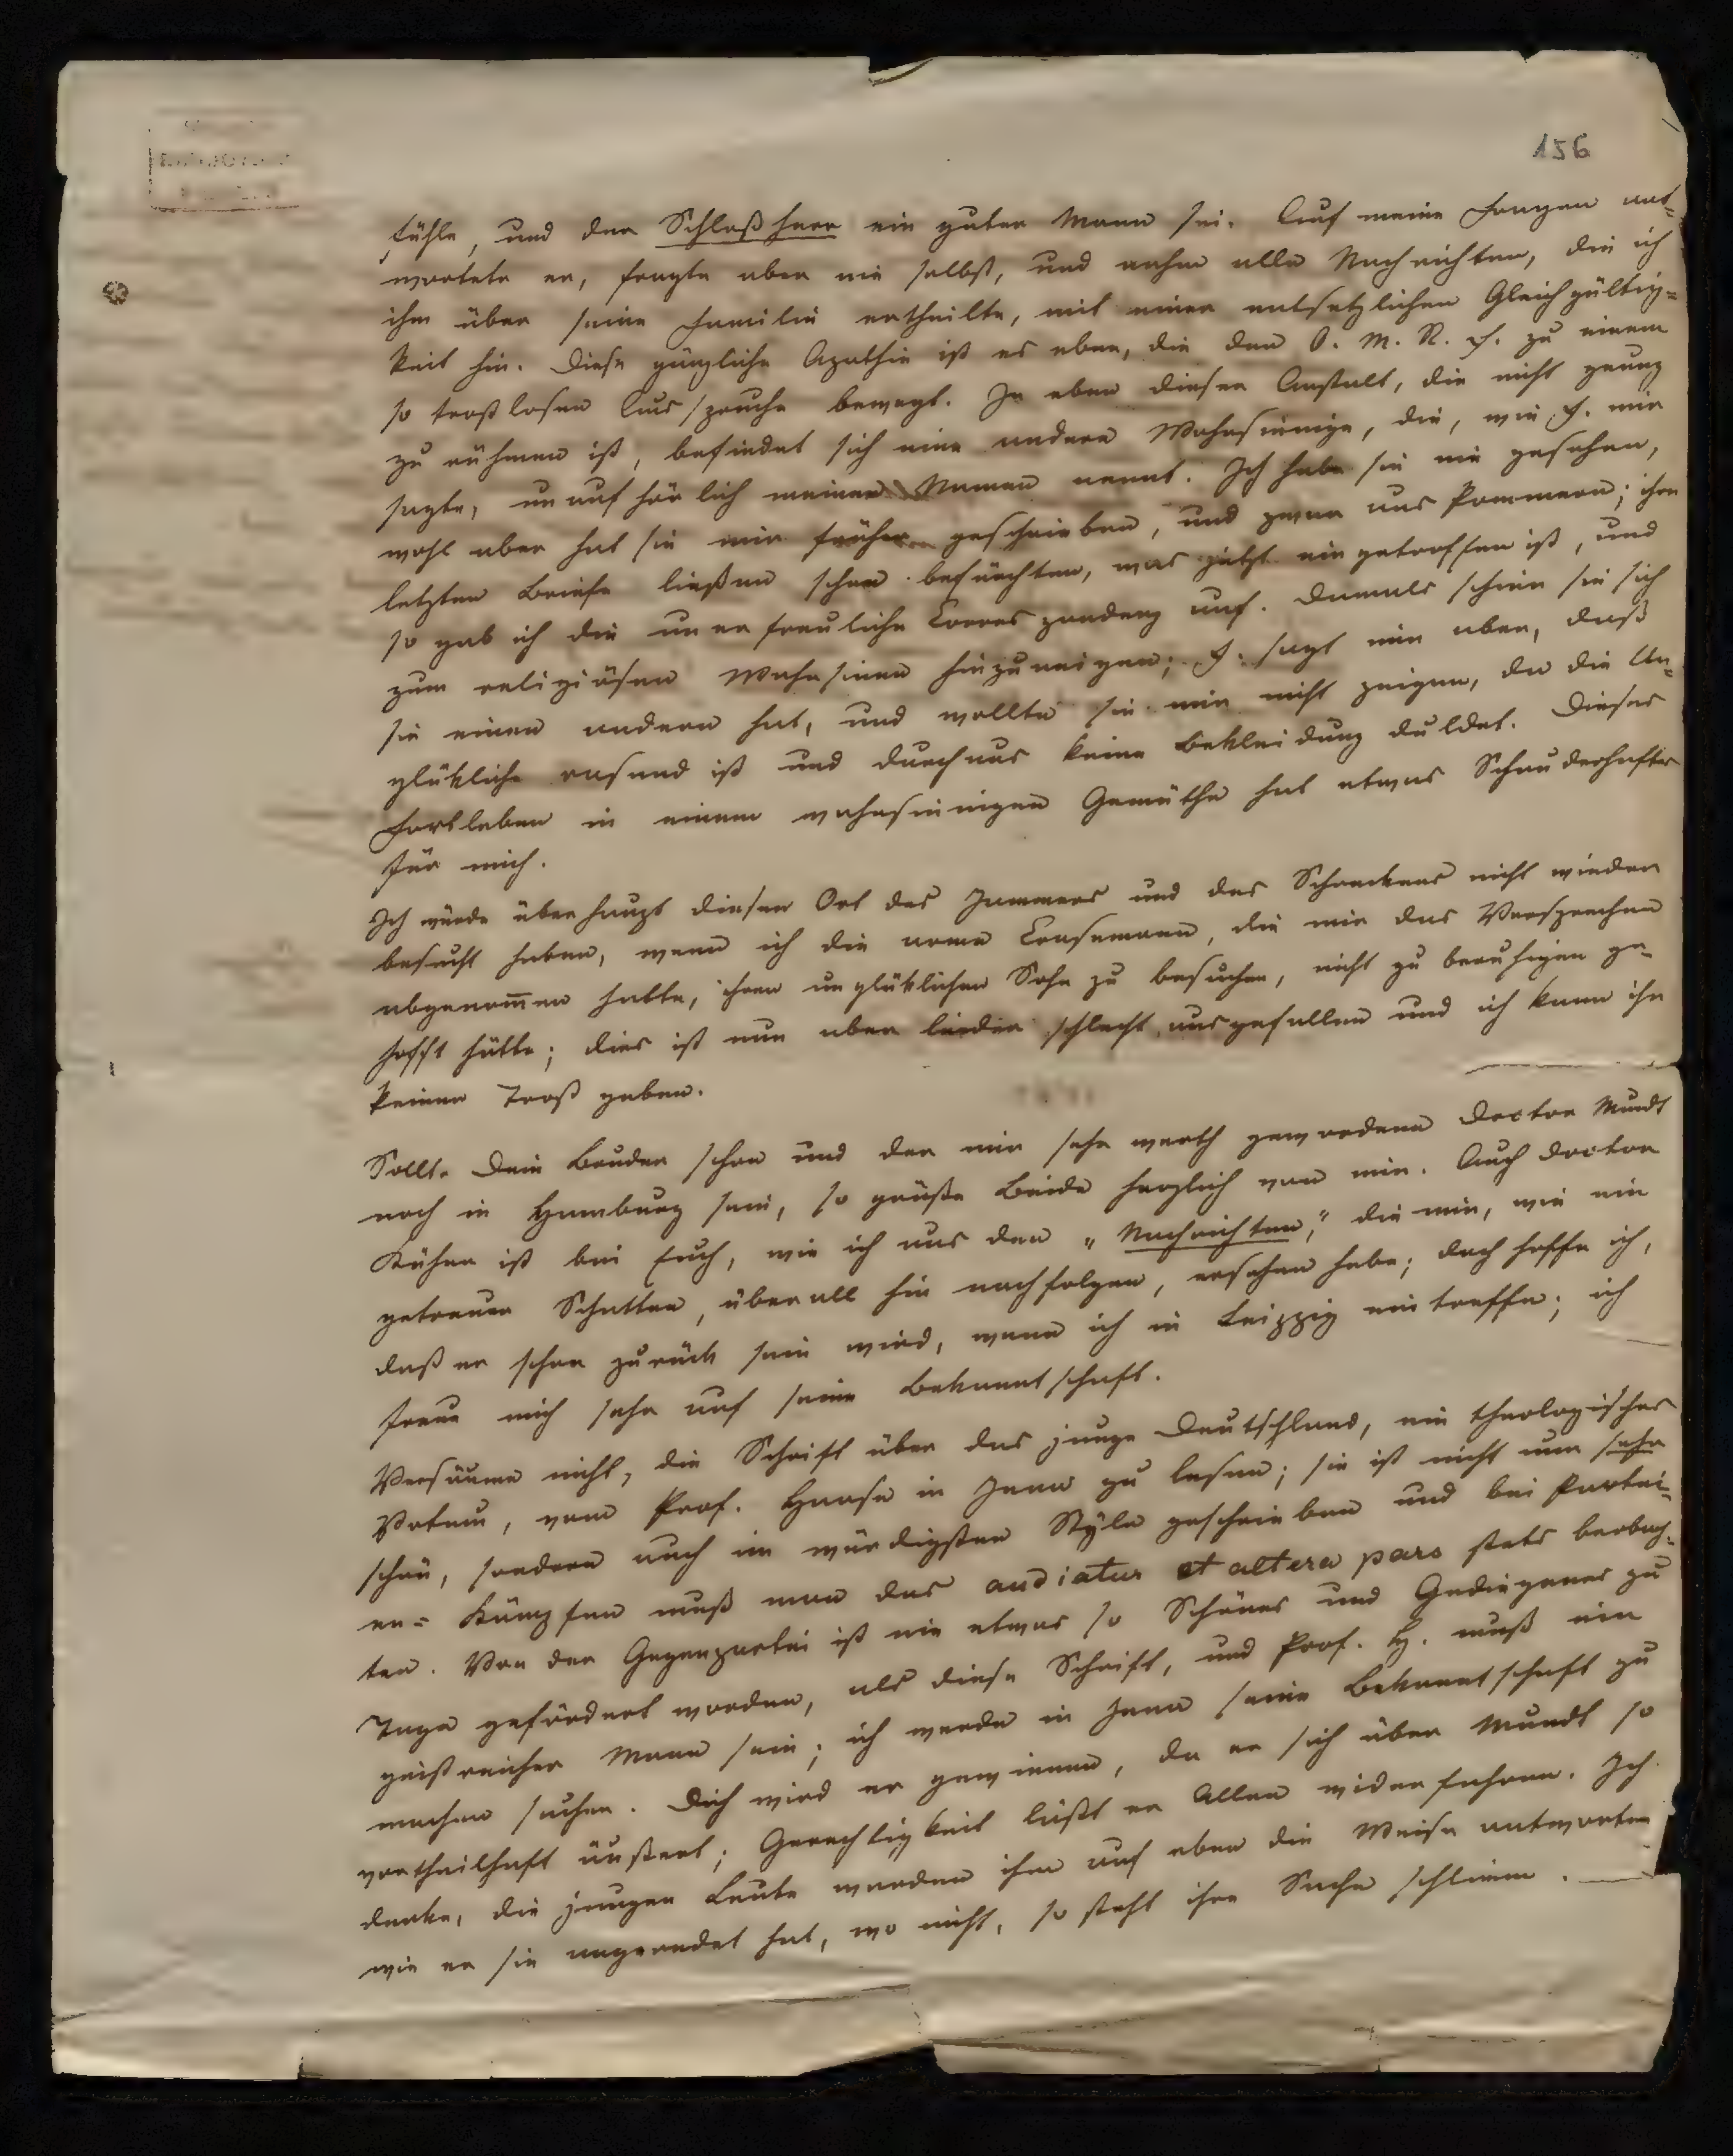 156
fühle, und der Schloßherr ein guter Mann sei. Auf meine Fragen ant-
wortete er, fragte aber nie selbst, und nahm alle Nachrichten, die ich
ihm über seine Familie ertheilte, mit einer entsetzlichen Gleichgültig-
keit hin. Diese gänzliche Apathie ist es eben, die den O. M. R. H. zu einem
so trostlosen Ausspruche bewegt. In eben dieser Anstalt, die nicht genug
zu rühmen ist, befindet sich eine andere Wahnsinnige, die, wie H. mir
sagte, unaufhörlich meinen Namen nennt. Ich habe sie nie gesehen,
wohl aber hat sie mir früher geschrieben, und zwar aus Pommern; ihre
letzten Briefe ließen schon befürchten, was jetzt eingetroffen ist, und
so gab ich die unerfreuliche Correspondenz auf. Damals schien sie sich
zum religiösen Wahnsinne hinzuneigen; H. sagt mir aber, daß
sie einen andern hat, und wollte sie mir nicht zeigen, da die Un-
glükliche rasend ist und durchaus keine Bekleidung duldet. Dieses
Fortleben in einem wahnsinnigen Gemüthe hat etwas Schauderhaftes
für mich.
Ich würde überhaupt diesen Ort des Jammers und des Schreckens nicht wieder
besucht haben, wenn ich die arme Crusemann, die mir das Versprechen
abgenom̅en hatte, ihren unglüklichen Sohn zu besuchen, nicht zu beruhigen ge-
hofft hätte; dies ist nun aber leider schlecht ausgefallen und ich kann ihr
keinen Trost geben.
Sollte Dein Bruder schon und der mir sehr werth gewordene Doctor Mundt
noch in Hamburg sein, so grüße Beide herzlich von mir. Auch Doctor
Kühne ist bei Euch, wie ich aus den „Nachrichten," die mir, wie ein
getreuer Schatten, überall hin nachfolgen, ersehen habe; doch hoffe ich,
daß er schon zurück sein wird, wenn ich in Leipzig eintreffe; ich
freue mich sehr auf seine Bekanntschaft.
Versäume nicht, die Schrift über das junge Deutschland, ein theologisches
Votum, vom Prof. Haase in Jena zu lesen; sie ist nicht nur sehr
schön, sondern auch im würdigsten Style geschrieben und bei Partei-
en-Kämpfen muß man das audiatur et altera pars stets beobach-
ten. Von der Gegenpartei ist nie etwas so Schönes und Gediegenes zu
Tage gefördert worden, als diese Schrift, und Prof. H. muß ein
geistreicher Mann sein; ich werde in Jena seine Bekanntschaft zu
machen suchen. Dich wird er gewinnen, da er sich über Mundt so
vortheilhaft äußert; Gerechtigkeit läßt er Allen widerfahren. Ich
denke, die jungen Leute werden ihm auf eben die Weise antworten
wie er sie angeredet hat, wo nicht, so steht ihre Sache schlimm.